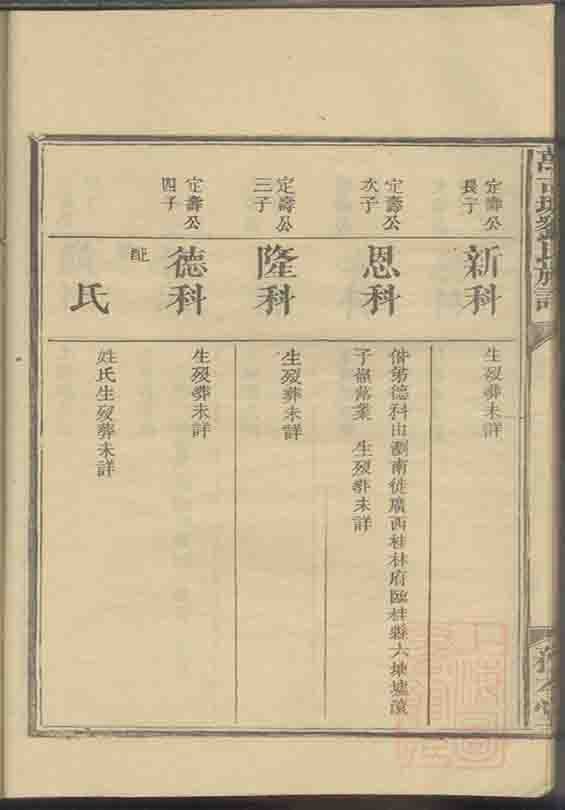 定壽公
長子
新科
生歿葬未詳
定壽公
次子
恩科
偕弟德科由瀏南徙廣西桂林府臨桂縣六墟
子 業 生歿葬未詳
定壽公
三子
隆科
生歿葬未詳
定壽公
四子
德科
生歿葬未詳
配
氏
姓氏生歿葬未詳
劉氏族譜